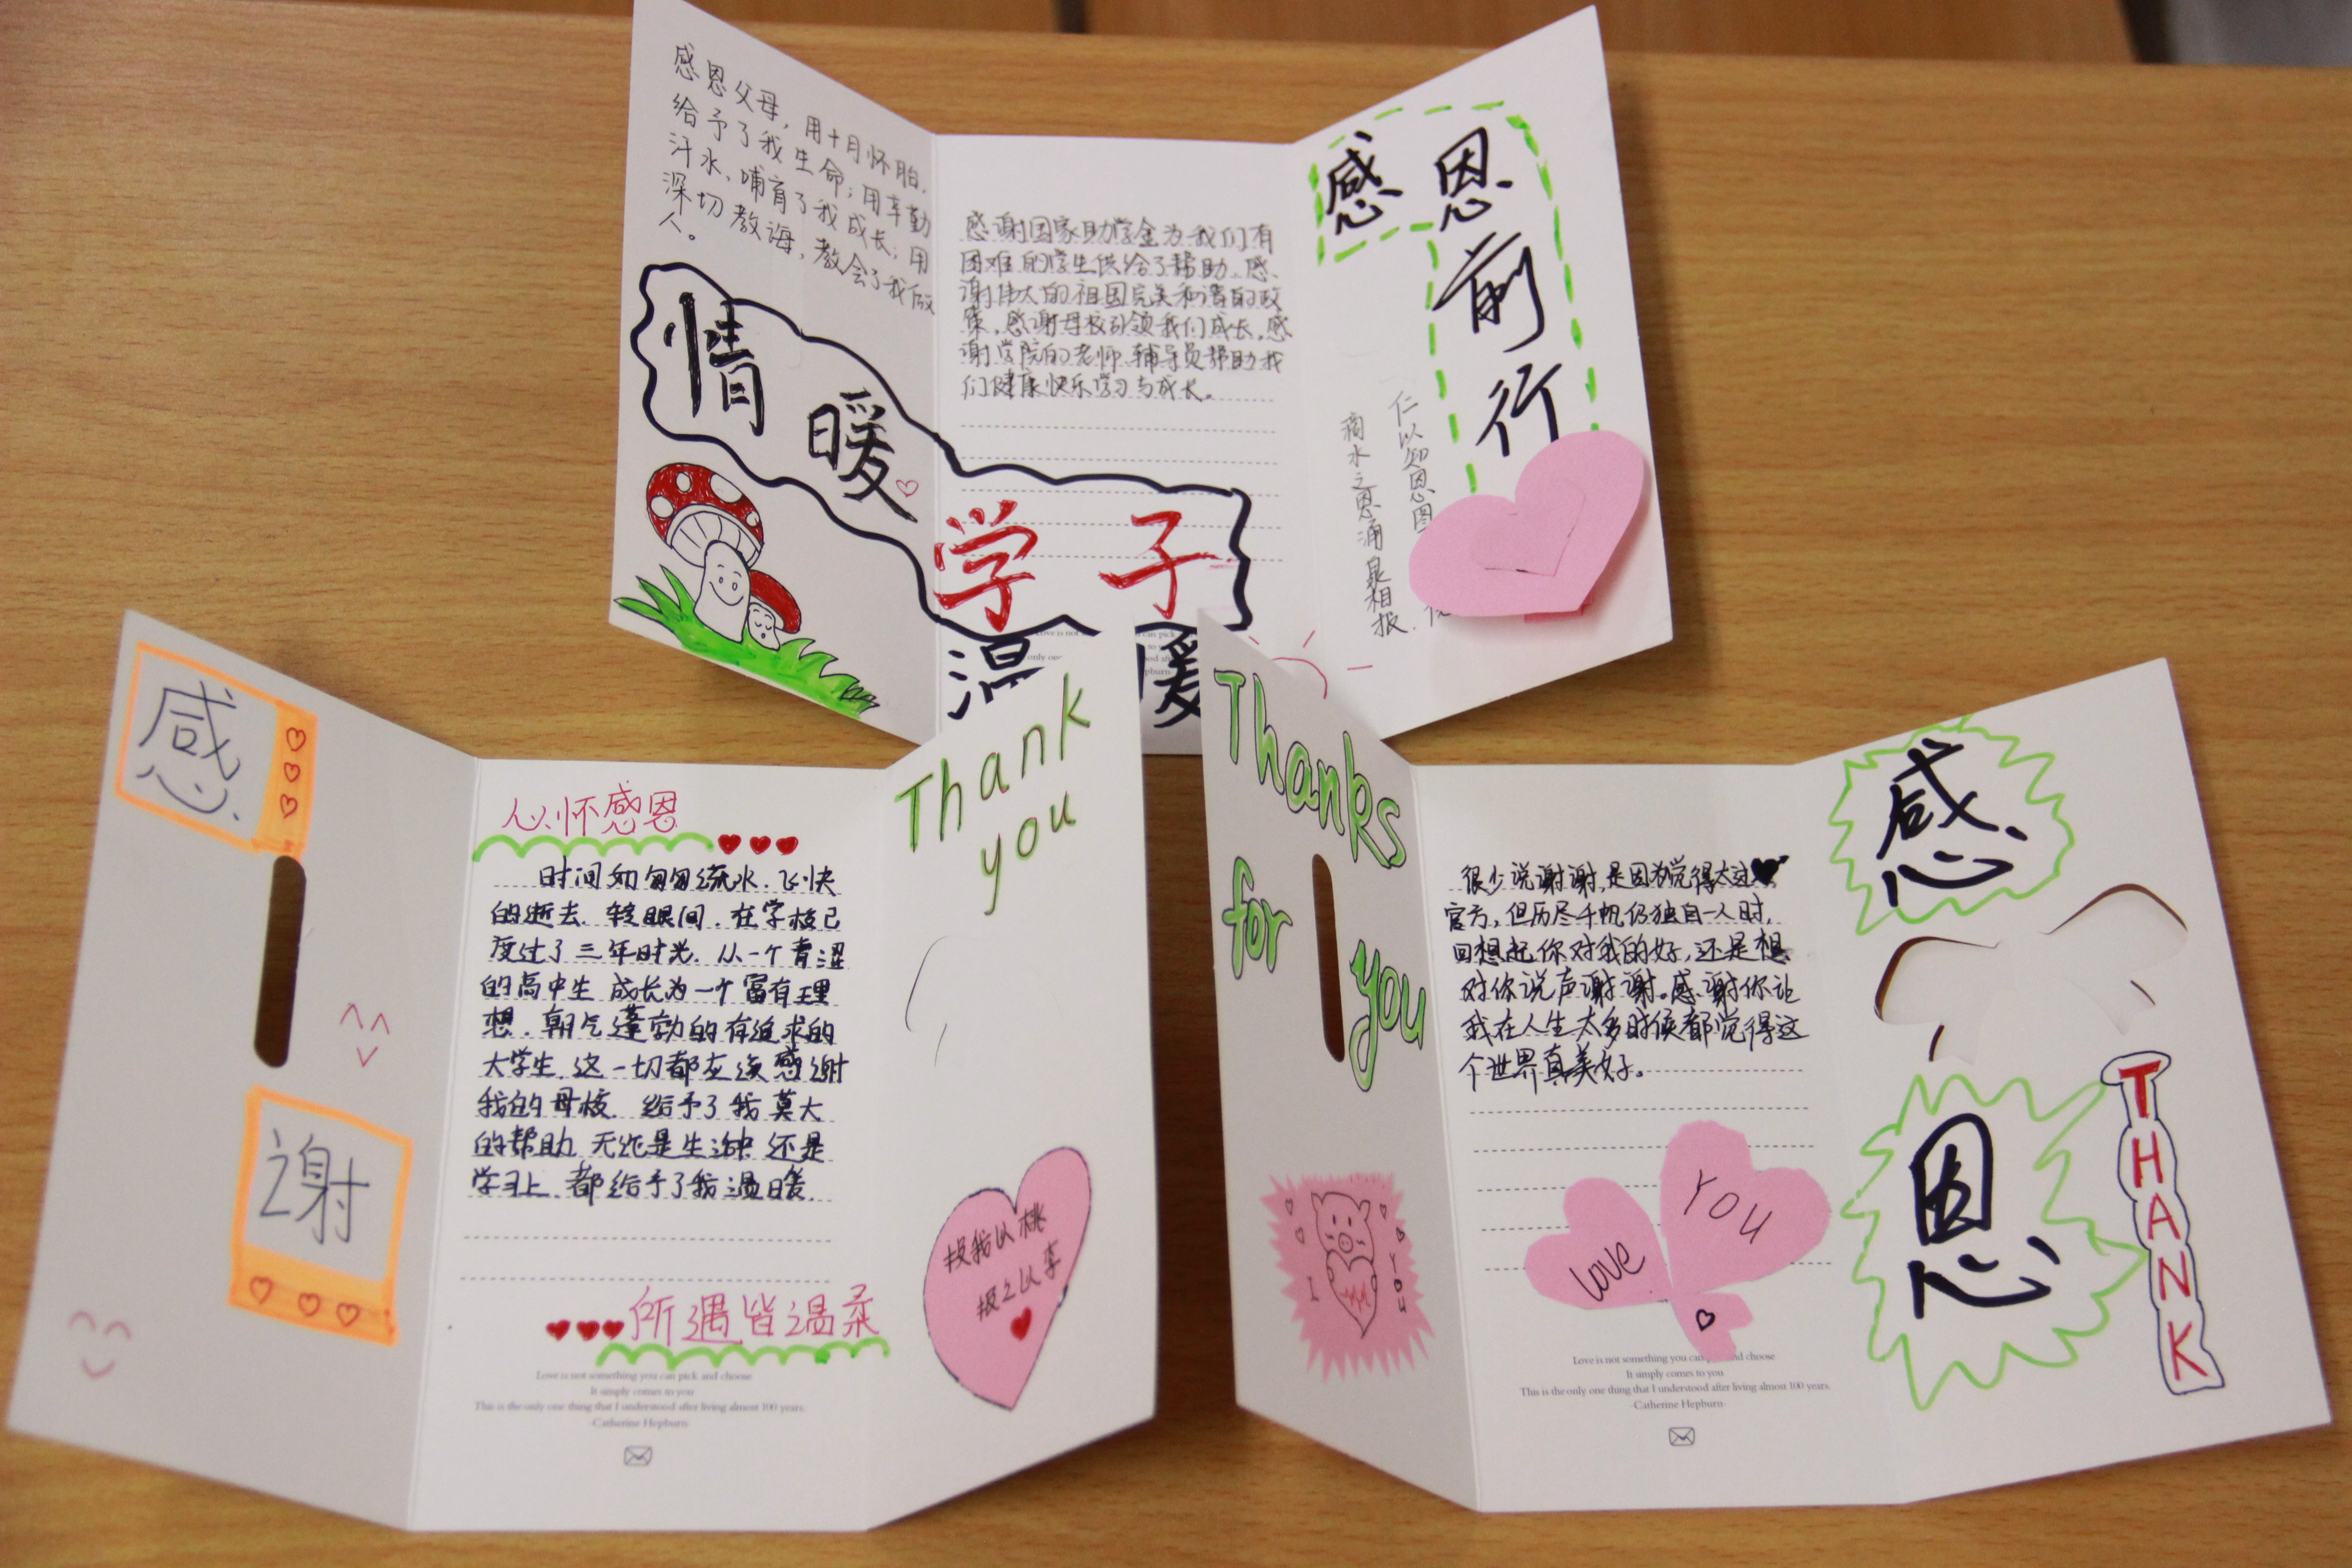 感恩父母，用十月怀胎，
给予了我生命；用辛勤
汗水，哺育了我成长；用
深切教诲，教会了我做
人。
情暖
学子
感谢国家助学金为我们有
困难的学生供给了帮助。感
谢伟大的祖国完美和谐的政
策，感谢母校引领我们成长，感
谢学院的老师、辅导员帮助我
们健康快乐学习与成长。
温暖
感恩
前
行
仁以知恩图
滴水之恩涌泉相报.
感
谢
心怀感恩
时间如匆匆流水，飞快
的逝去，转眼间，在学校已
度过了三年时光，从一个青涩
的高中生 成长为一个富有理
想，朝气蓬勃的有追求的
大学生，这一切都应该感谢
我的母校，给予了我莫大
的帮助，无论是生活中 还是
学习上，都给予了我温暖.
所遇皆温柔
Love is not something you can pick and choose
It simply comes to you
This is the only one thing that I understood after living almost 100 years.
-Catherine Hepburn-
Thank
you
投我以桃
报之以李
Thanks
for
you
I
YOU
很少说谢谢，是因为觉得太过
官方，但历尽千帆仍独自一人时，
回想起你对我的好，还是想
对你说声谢谢。感谢你让
我在人生太多时候都觉得这
个世界真美好。
love
YOU
Love is not something you can and choose
It simply comes to you
This is the only one thing that I understood after living almost 100 years.
-Catherine Hepburn-
感
恩
THANK